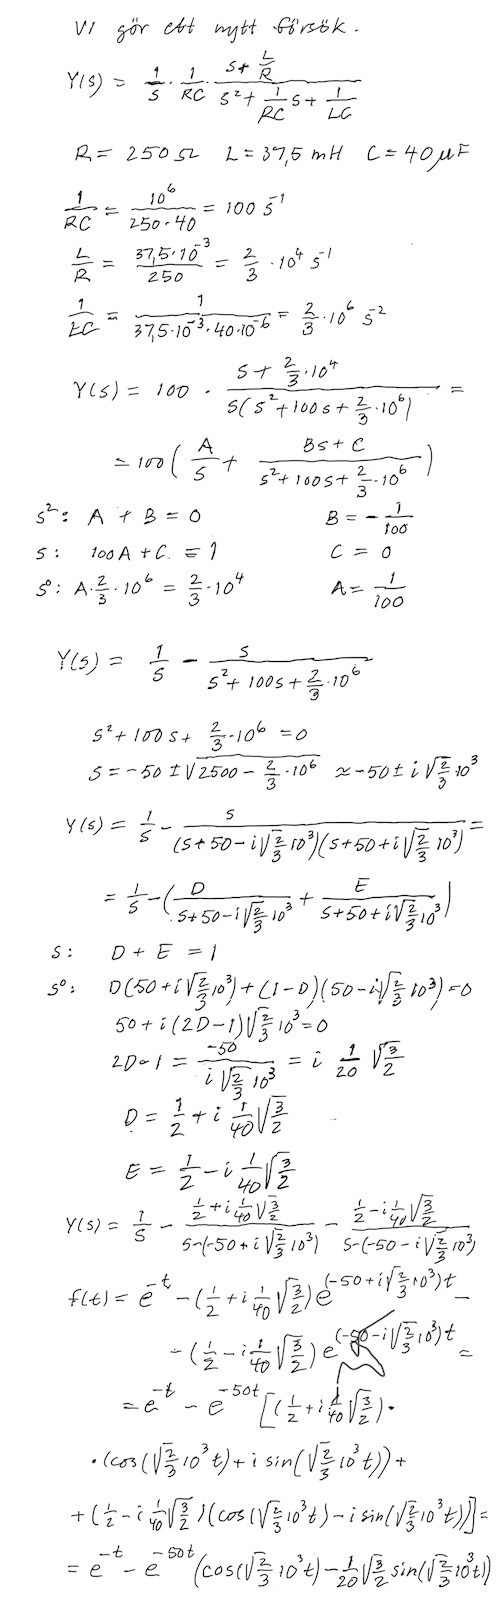 Vi gör ett nytt försök.
Y(s) = 1/s · 1/RC · (s + L/R)/(s² + 1/RC s + 1/LC)
R = 250 Ω L = 37,5 mH C = 40 μF
1/RC = 10⁶/(250·40) = 100 s⁻¹
L/R = 37,5·10⁻³/250 = 2/3 · 10⁴ s⁻¹
1/LC = 1/(37,5·10⁻³·40·10⁻⁶) = 2/3 · 10⁶ s⁻²
Y(s) = 100 · (s + 2/3·10⁴)/(s(s² + 100s + 2/3·10⁶)) =
= 100(A/s + (Bs + C)/(s² + 100s + 2/3·10⁶))
s²: A + B = 0 B = -1/100
s: 100A + C = 1 C = 0
s⁰: A·2/3·10⁶ = 2/3·10⁴ A = 1/100
Y(s) = 1/s - s/(s² + 100s + 2/3·10⁶)
s² + 100s + 2/3·10⁶ = 0
s = -50 ± √(2500 - 2/3·10⁶) ≈ -50 ± i√(2/3) 10³
Y(s) = 1/s - s/((s + 50 - i√(2/3) 10³)(s + 50 + i√(2/3) 10³)) =
= 1/s - (D/(s + 50 - i√(2/3) 10³) + E/(s + 50 + i√(2/3) 10³))
s: D + E = 1
s⁰: D(50 + i√(2/3) 10³) + (1 - D)(50 - i√(2/3) 10³) = 0
50 + i(2D - 1)√(2/3) 10³ = 0
2D - 1 = -50/(i√(2/3) 10³) = i 1/20 √(3/2)
D = 1/2 + i 1/40 √(3/2)
E = 1/2 - i 1/40 √(3/2)
Y(s) = 1/s - (1/2 + i 1/40 √(3/2))/(s - (-50 + i√(2/3) 10³)) - (1/2 - i 1/40 √(3/2))/(s - (-50 - i√(2/3) 10³))
f(t) = e⁻ᵗ - (1/2 + i 1/40 √(3/2)) e^((-50 + i√(2/3) 10³)t) -
- (1/2 - i 1/40 √(3/2)) e^((-50 - i√(2/3) 10³)t) =
= e⁻ᵗ - e⁻⁵⁰ᵗ [(1/2 + i 1/40 √(3/2)) ·
· (cos(√(2/3) 10³ t) + i sin(√(2/3) 10³ t)) +
+ (1/2 - i 1/40 √(3/2))(cos(√(2/3) 10³ t) - i sin(√(2/3) 10³ t))] =
= e⁻ᵗ - e⁻⁵⁰ᵗ (cos(√(2/3) 10³ t) - 1/20 √(3/2) sin(√(2/3) 10³ t))